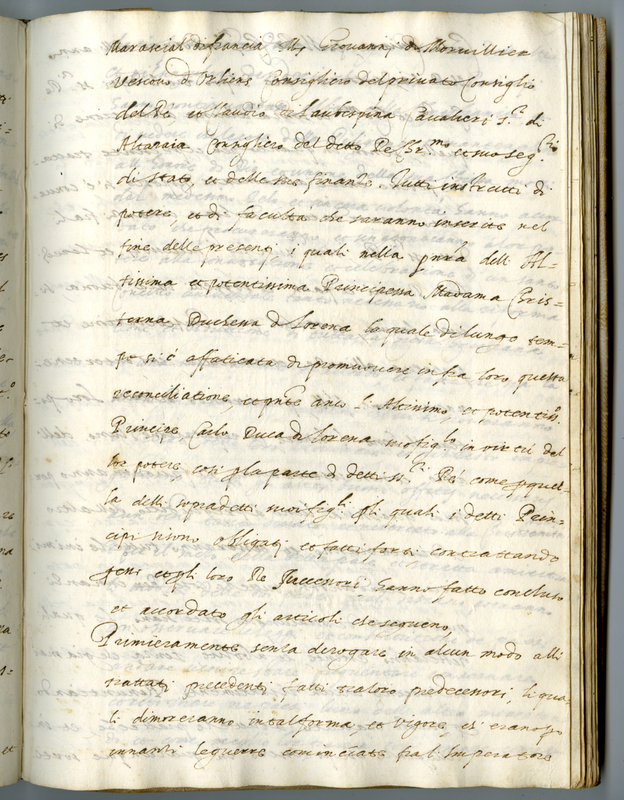 Marascial di francia Mr Giovanni di Morvillier
Vescovo d'Orliens Consigliero del privato Consiglio
del Re et Claudio de l'aubespina Cavalieri s.ri di
Altaraia Consigliero del detto Re Chr.mo et suo seg.rio
di stato, et delle sue finanze. Tutti instrutti di
potere, et di facultà che saranno inserite nel
fine delle presenti i quali nella pnza dell Al=
tissima et potentissima Principessa Madama Chris=
terna Duchessa di Lorena la quale di lungo tem=
po si è affaticata di promuovere infra loro questa
reconciliatione, et
anco Altissimo, et potentiss.
Principe Carlo Duca di Lorena suo figlo in virtù del
lor potere, così p la parte di detti s.ri Rè come p quel=
la delli sopradetti suoi figli p li quali i detti Prin=
cipi si sono obligati et fatti forti contrattando
p essi et p gli loro Re successori hanno fatto concluso
et accordato gli articoli che sequeno,
Primieramente senza derogare in alcun modo alli
trattati precedenti fatti tra loro predecessori, li qua=
li dimoreranno in tal forma, et vigore, ch'erano p
innanti le guerre cominciate fra l'Imperatore